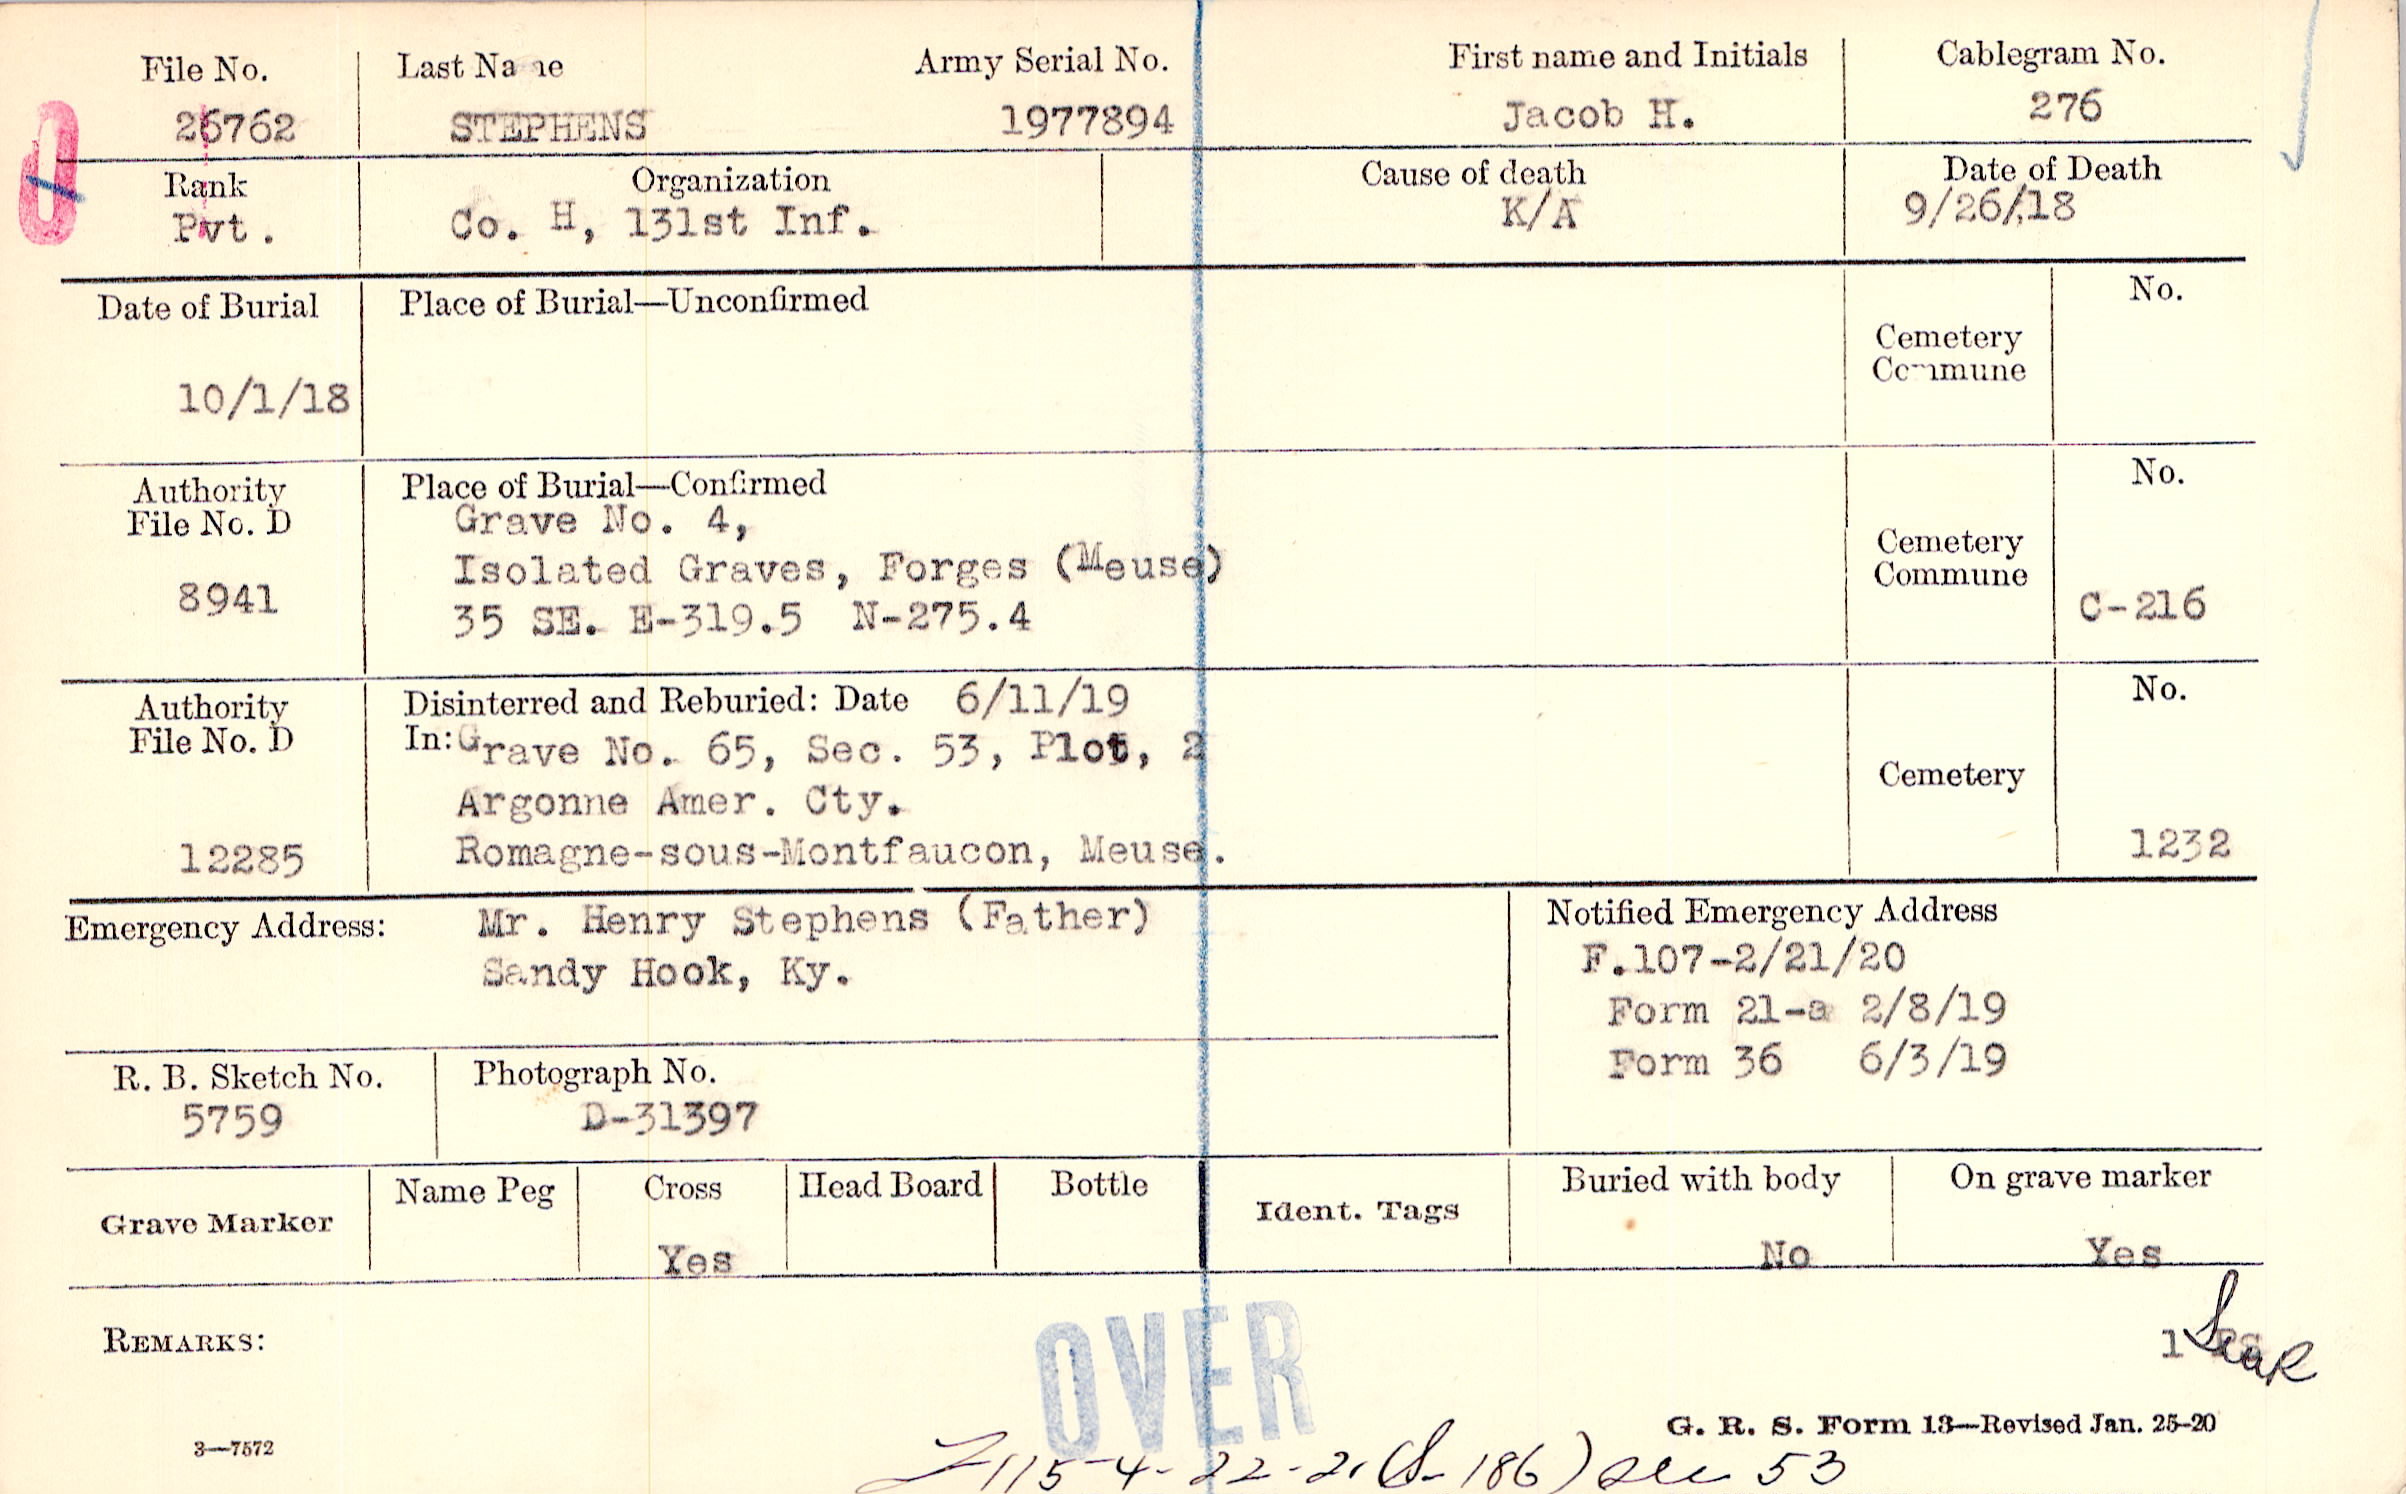 File No. Last Name Army Serial No. First name and Initials Cablegram No.
26762 STEPHENS 1977894 Jacob H. 276
Rank Organization Cause of death Date of Death
Pvt. Co. H, 131st Inf. K/A 9/26/18
Date of Burial Place of Burial—Unconfirmed No.
Cemetery
Commune
10/1/18
Authority Place of Burial—Confirmed No.
File No. D Grave No. 4,
Isolated Graves, Forges (Meuse) Cemetery
8941 Commune C-216
35 SE. E-319.5 N-275.4
Authority Disinterred and Reburied: Date 6/11/19 No.
File No. D In: Grave No. 65, Sec. 53, Plot, 2
Argonne Amer. Cty. Cemetery
12285 Romagne-sous-Montfaucon, Meuse. 1232
Emergency Address: Mr. Henry Stephens (Father) Notified Emergency Address
Sandy Hook, Ky. F.107-2/21/20
Form 21-a 2/8/19
Form 36 6/3/19
R. B. Sketch No. Photograph No.
5759 D-31397
Grave Marker Name Peg Cross Head Board Bottle Ident. Tags Buried with body On grave marker
Yes No Yes
REMARKS:
1
OVER
G. R. S. Form 13—Revised Jan. 25-20
3—7572
115-4-22-21 (S-186) sec 53